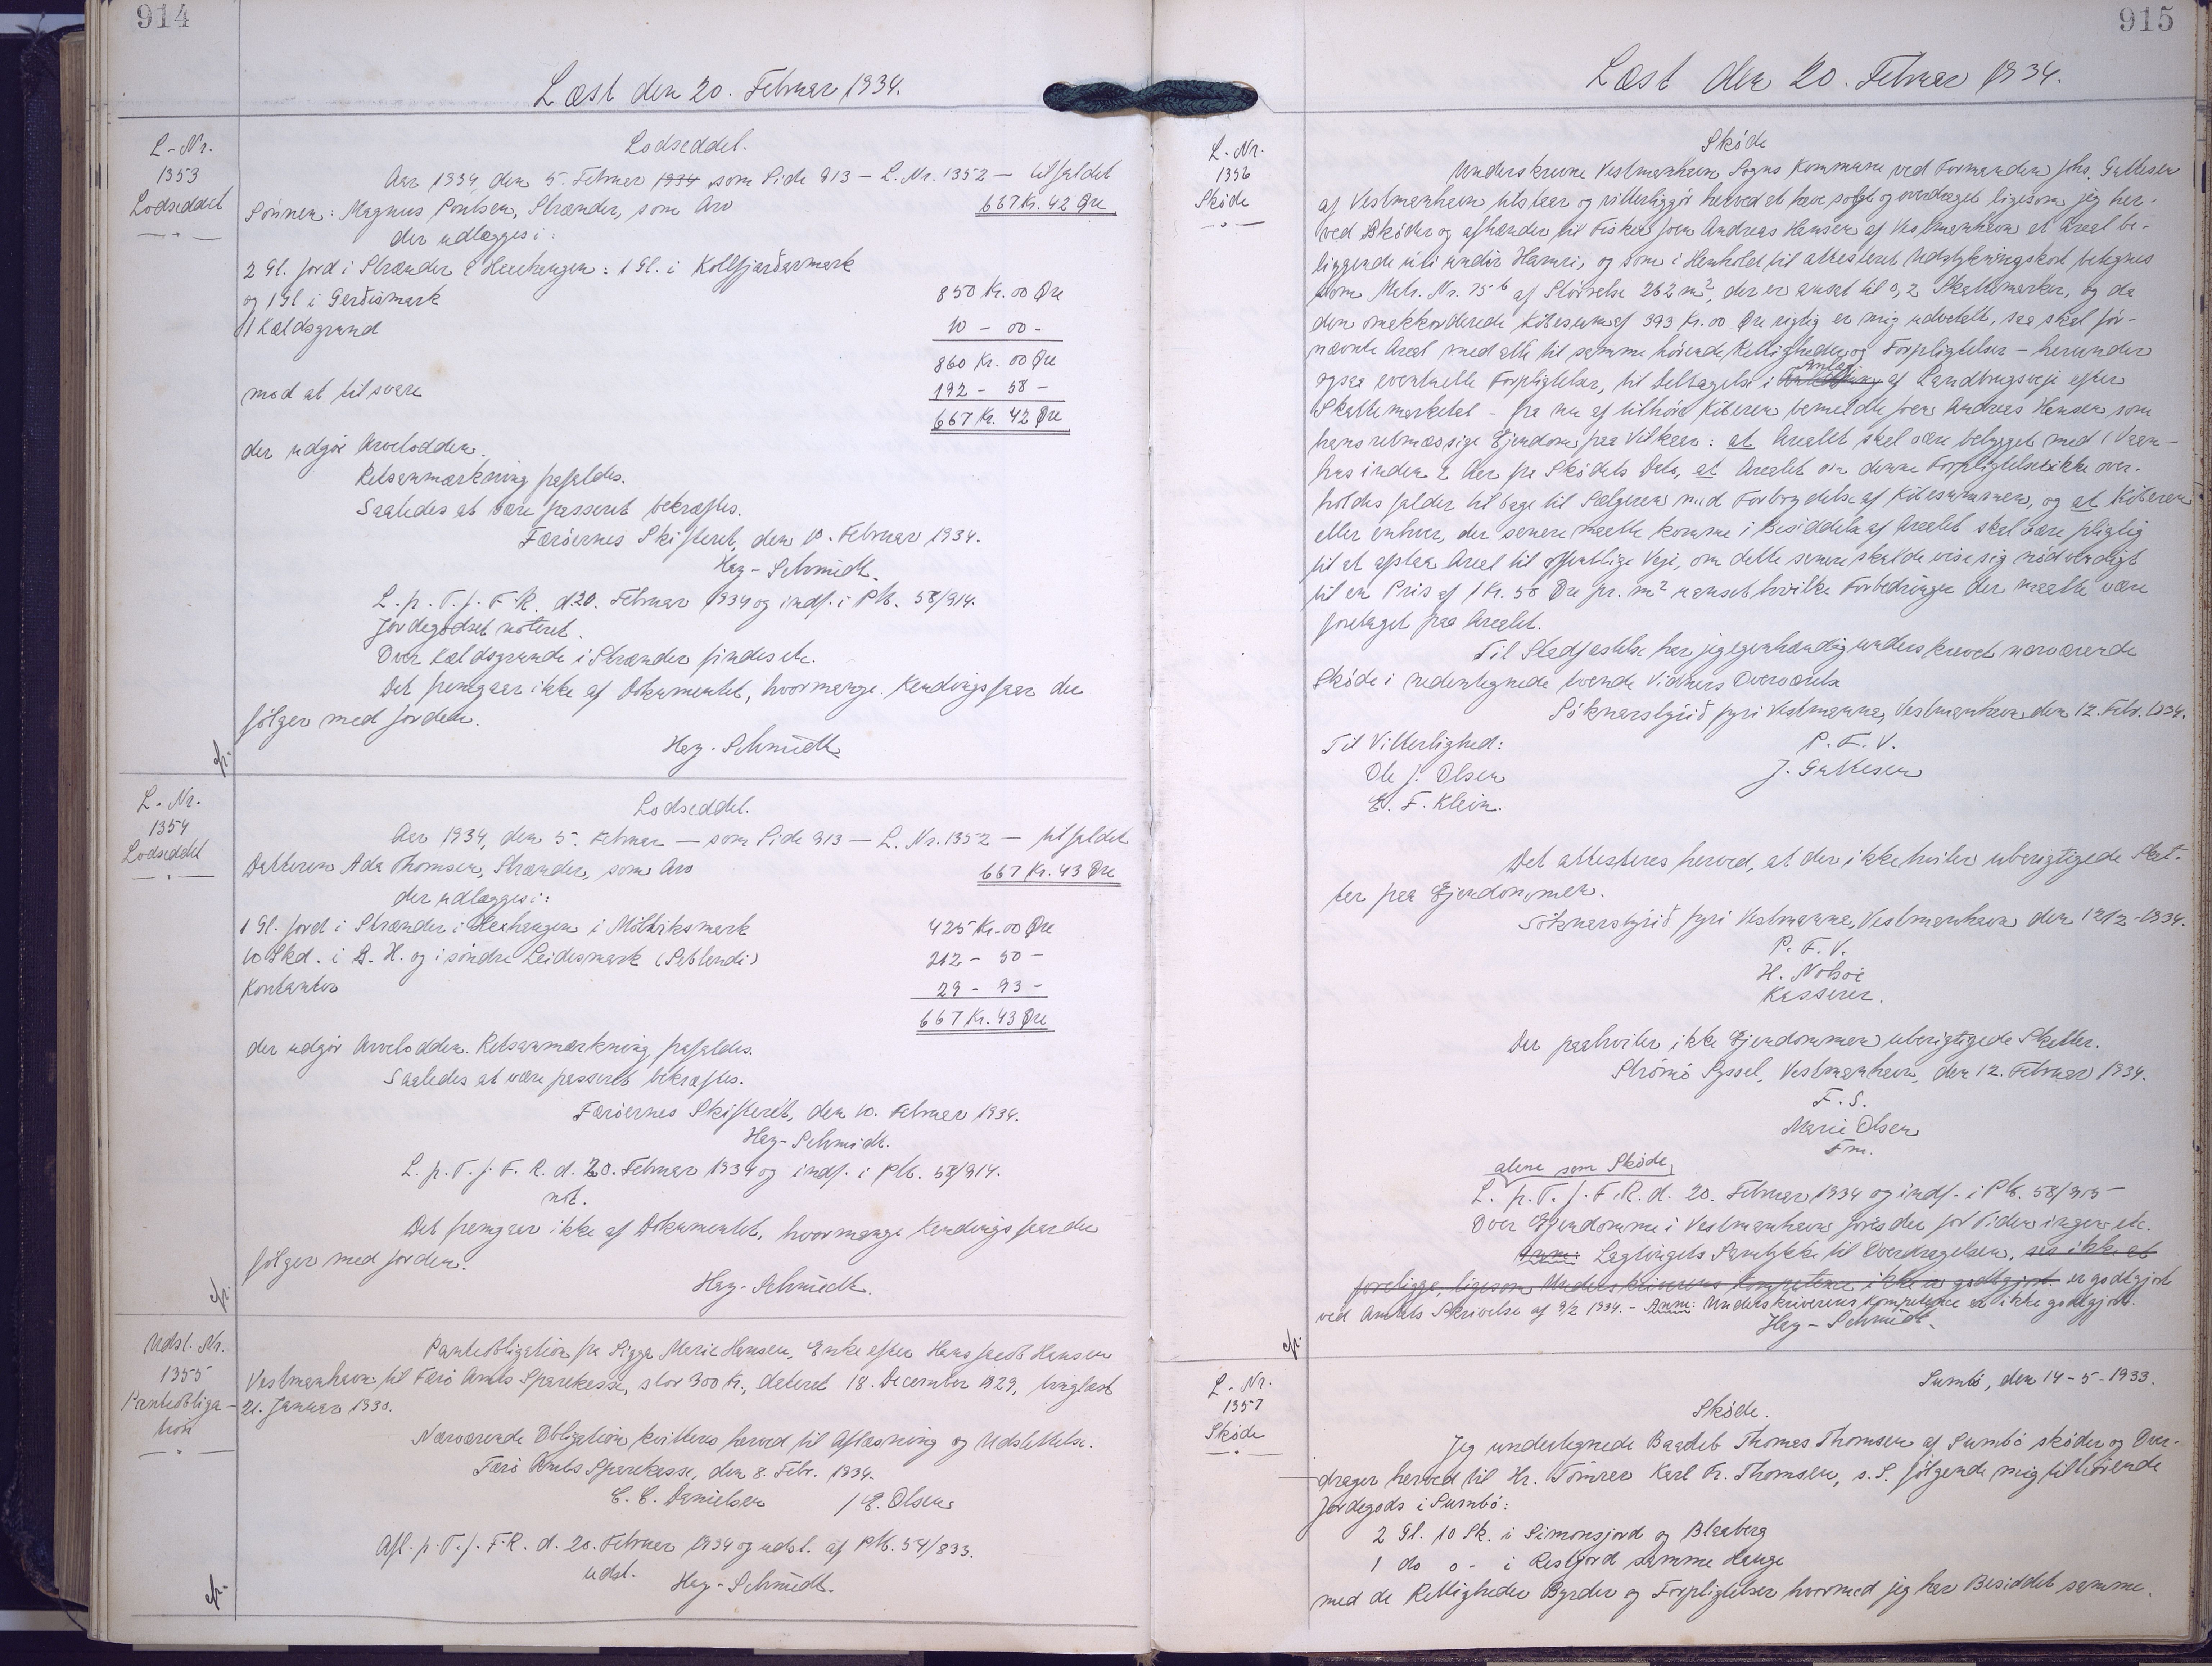 914
Læst den 20. Februar 1934.
L-Nr.
1353
Lodseddel
Lodseddel.
Aar 1934, den 5. Februar 1934 som Side 913 — L. Nr. 1352 — tilfaldet
Sönnen: Magnus Poulsen, Strænder, som Arv 667 Kr. 42 Øre
der udlægges i:
2 Gl. Jord i Strænder i Heuhangen: 1 Gl. i Kollfjarðarmark
og 1 Gl i Gerdismark 850 Kr. 00 Øre
1 Kældsgrund 10 - 00 -
860 Kr. 00 Øre
mod at tilsvare 192 - 58 -
667 Kr. 42 Øre
der udgör Arvelodden.
Retsanmærkning frafaldes.
Saaledes at være passeret bekræftes.
Færöernes Skifteret, den 10. Februar 1934.
Hey-Schmidt.
L. p. T. f. F. R. d. 20. Februar 1934 og indf. i Ptb. 58/914.
Jordegodset noteret.
Over Kældsgrunde i Strænder findes etc.
Det fremgaar ikke af Dokumentet, hvormange Kendingsfaar der
fölger med Jorden.
Hey-Schmidt
L. Nr.
1354
Lodseddel
Lodseddel.
Aar 1934, den 5. Februar — som Side 913 — L. Nr. 1352 — tilfaldet
Datteren Ada Thomsen, Strænder, som Arv 667 Kr. 43 Øre
der udlægges i:
1 Gl. Jord i Strænder i Heuhangen i Mölliksmark 425 Kr. 00 Øre
10 Skd. i B. H. og i söndre Leidesmark (Seblendi) 212 - 50 -
Kontanter 29 - 93 -
667 Kr. 43 Øre
der udgör Arvelodden. Retsanmærkning frafaldes.
Saaledes at være passeret bekræftes.
Færöernes Skifteret, den 10. Februar 1934.
Hey-Schmidt.
L. p. T. f. F. R. d. 20. Februar 1934 og indf. i Ptb. 58/914.
not.
Det fremgaar ikke af Dokumentet, hvormange Kendingsfaar der
fölger med Jorden.
Hey-Schmidt.
Udsl. Nr.
1355
Panteobliga-
tion
Panteobligation fra Sigga Marie Hansen, Enke efter Hans Jacob Hansen
Vestmanhavn til Færö Amts Sparekasse, stor 300 Kr., dateret 18. December 1929, tinglæst
21. Januar 1930.
Nærværende Obligation kvitteres herved til Aflæsning og Udslettelse.
Færö Amts Sparekasse, den 8. Febr. 1934.
C. C. Danielsen / E. Olsen
Afl. p. T. f. F. R. d. 20. Februar 1934 og udsl. af Ptb. 54/833.
udsl. Hey-Schmidt.
915
Læst den 20. Februar 1934.
L. Nr.
1356
Sköde
Sköde
Underskrevne Vestmanhavn Sogns Kommune ved Formanden Johs. Guttesen
af Vestmanhavn tilstaar og vitterliggör herved at have solgt og overdraget ligesom jeg her-
ved sköder og afhænder til Fisker Joen Andreas Hansen af Vestmanhavn et Areal be-
liggende uti undir Hamri, og som i Henhold til attesteret Udstykningskort betegnes
som Matr. Nr. 75 b af Störrelse 262 m², der er ansat til 0,2 Skattemarker, og da
den omakkorderede Köbesum af 393 Kr. 00 Øre rigtig er mig udbetalt, saa skal for-
nævnte Areal med alle til samme hörende Rettigheder og Forpligtelser — herunder
ogsaa eventuelle Forpligtelser, til Deltagelse i Anlæg af Landbrugsveje efter
Skattemarketal — fra nu af tilhöre Köberen bemeldte Joen Andreas Hansen som
hans retmæssige Ejendom paa Vilkaar: at Arealet skal være bebygget med 1 Vaan-
hus inden 2 Aar fra Sködets Dato, at Arealet om denne Forpligtelse ikke over-
holdes falder tilbage til Sælgeren med Forbrydelse af Köbesummen, og at Köberen
eller enhver, der senere maatte komme i Besiddelse af Arealet skal være pligtig
til at afstaa Areal til offentlige Veje, om dette senere skulde vise sig nödvendigt
til en Pris af 1 Kr. 50 Øre pr. m² uanset hvilke Forbedringer der maatte være
foretaget paa Arealet.
Til Stadfæstelse har jeg egenhændig underskrevet nærværende
Sköde i nedentegnede tvende Vidners Overværelse
Söknarstýrið fyri Vestmanna, Vestmanhavn den 12. Febr. 1934.
Til Vitterlighed: P. F. V.
Ole J. Olsen J. Guttesen
E. F. Klein.
Det attesteres herved, at der ikke hviler uberigtigede Skat-
ter paa Ejendommen.
Söknarstýrið fyri Vestmanna, Vestmanhavn den 12/2-1934.
P. F. V.
H. Nolsöe
Kasserer.
Der paahviler ikke Ejendommen uberigtigede Skatter.
Strömö Syssel, Vestmanhavn, den 12. Februar 1934.
F. S.
Marie Olsen
Fm.
alene som Sköde,
L. p. T. f. F. R. d. 20. Februar 1934 og indf. i Ptb. 58/915 —
Over Ejendomme i Vestmanhavn föres der for Tiden ingen etc.
Anm: Lagtingets Samtykke til Overdragelsen, ses ikke at
foreligge, ligesom Underskriverens Kompetence ikke er godtgjort er godtgjort
ved Amtets Skrivelse af 9/2 1934. - Anm: Underskriverens Kompetence er ikke godtgjort.
Hey-Schmidt.
L. Nr.
1357
Sköde
Sumbö, den 14-5-1933.
Sköde.
Jeg undertegnede Baadeb Thomas Thomsen af Sumbö sköder og Over-
drager herved til Hr. Tömrer Karl Fr. Thomsen, s. S. fölgende mig tilhörende
Jordegods i Sumbö:
2 Gl. 10 Sk. i Simonsjord og Blaaberg
1 do 0 - i Restjord samme Hauge
med de Rettigheder Byrder og Forpligtelser hvormed jeg har Besiddet samme.